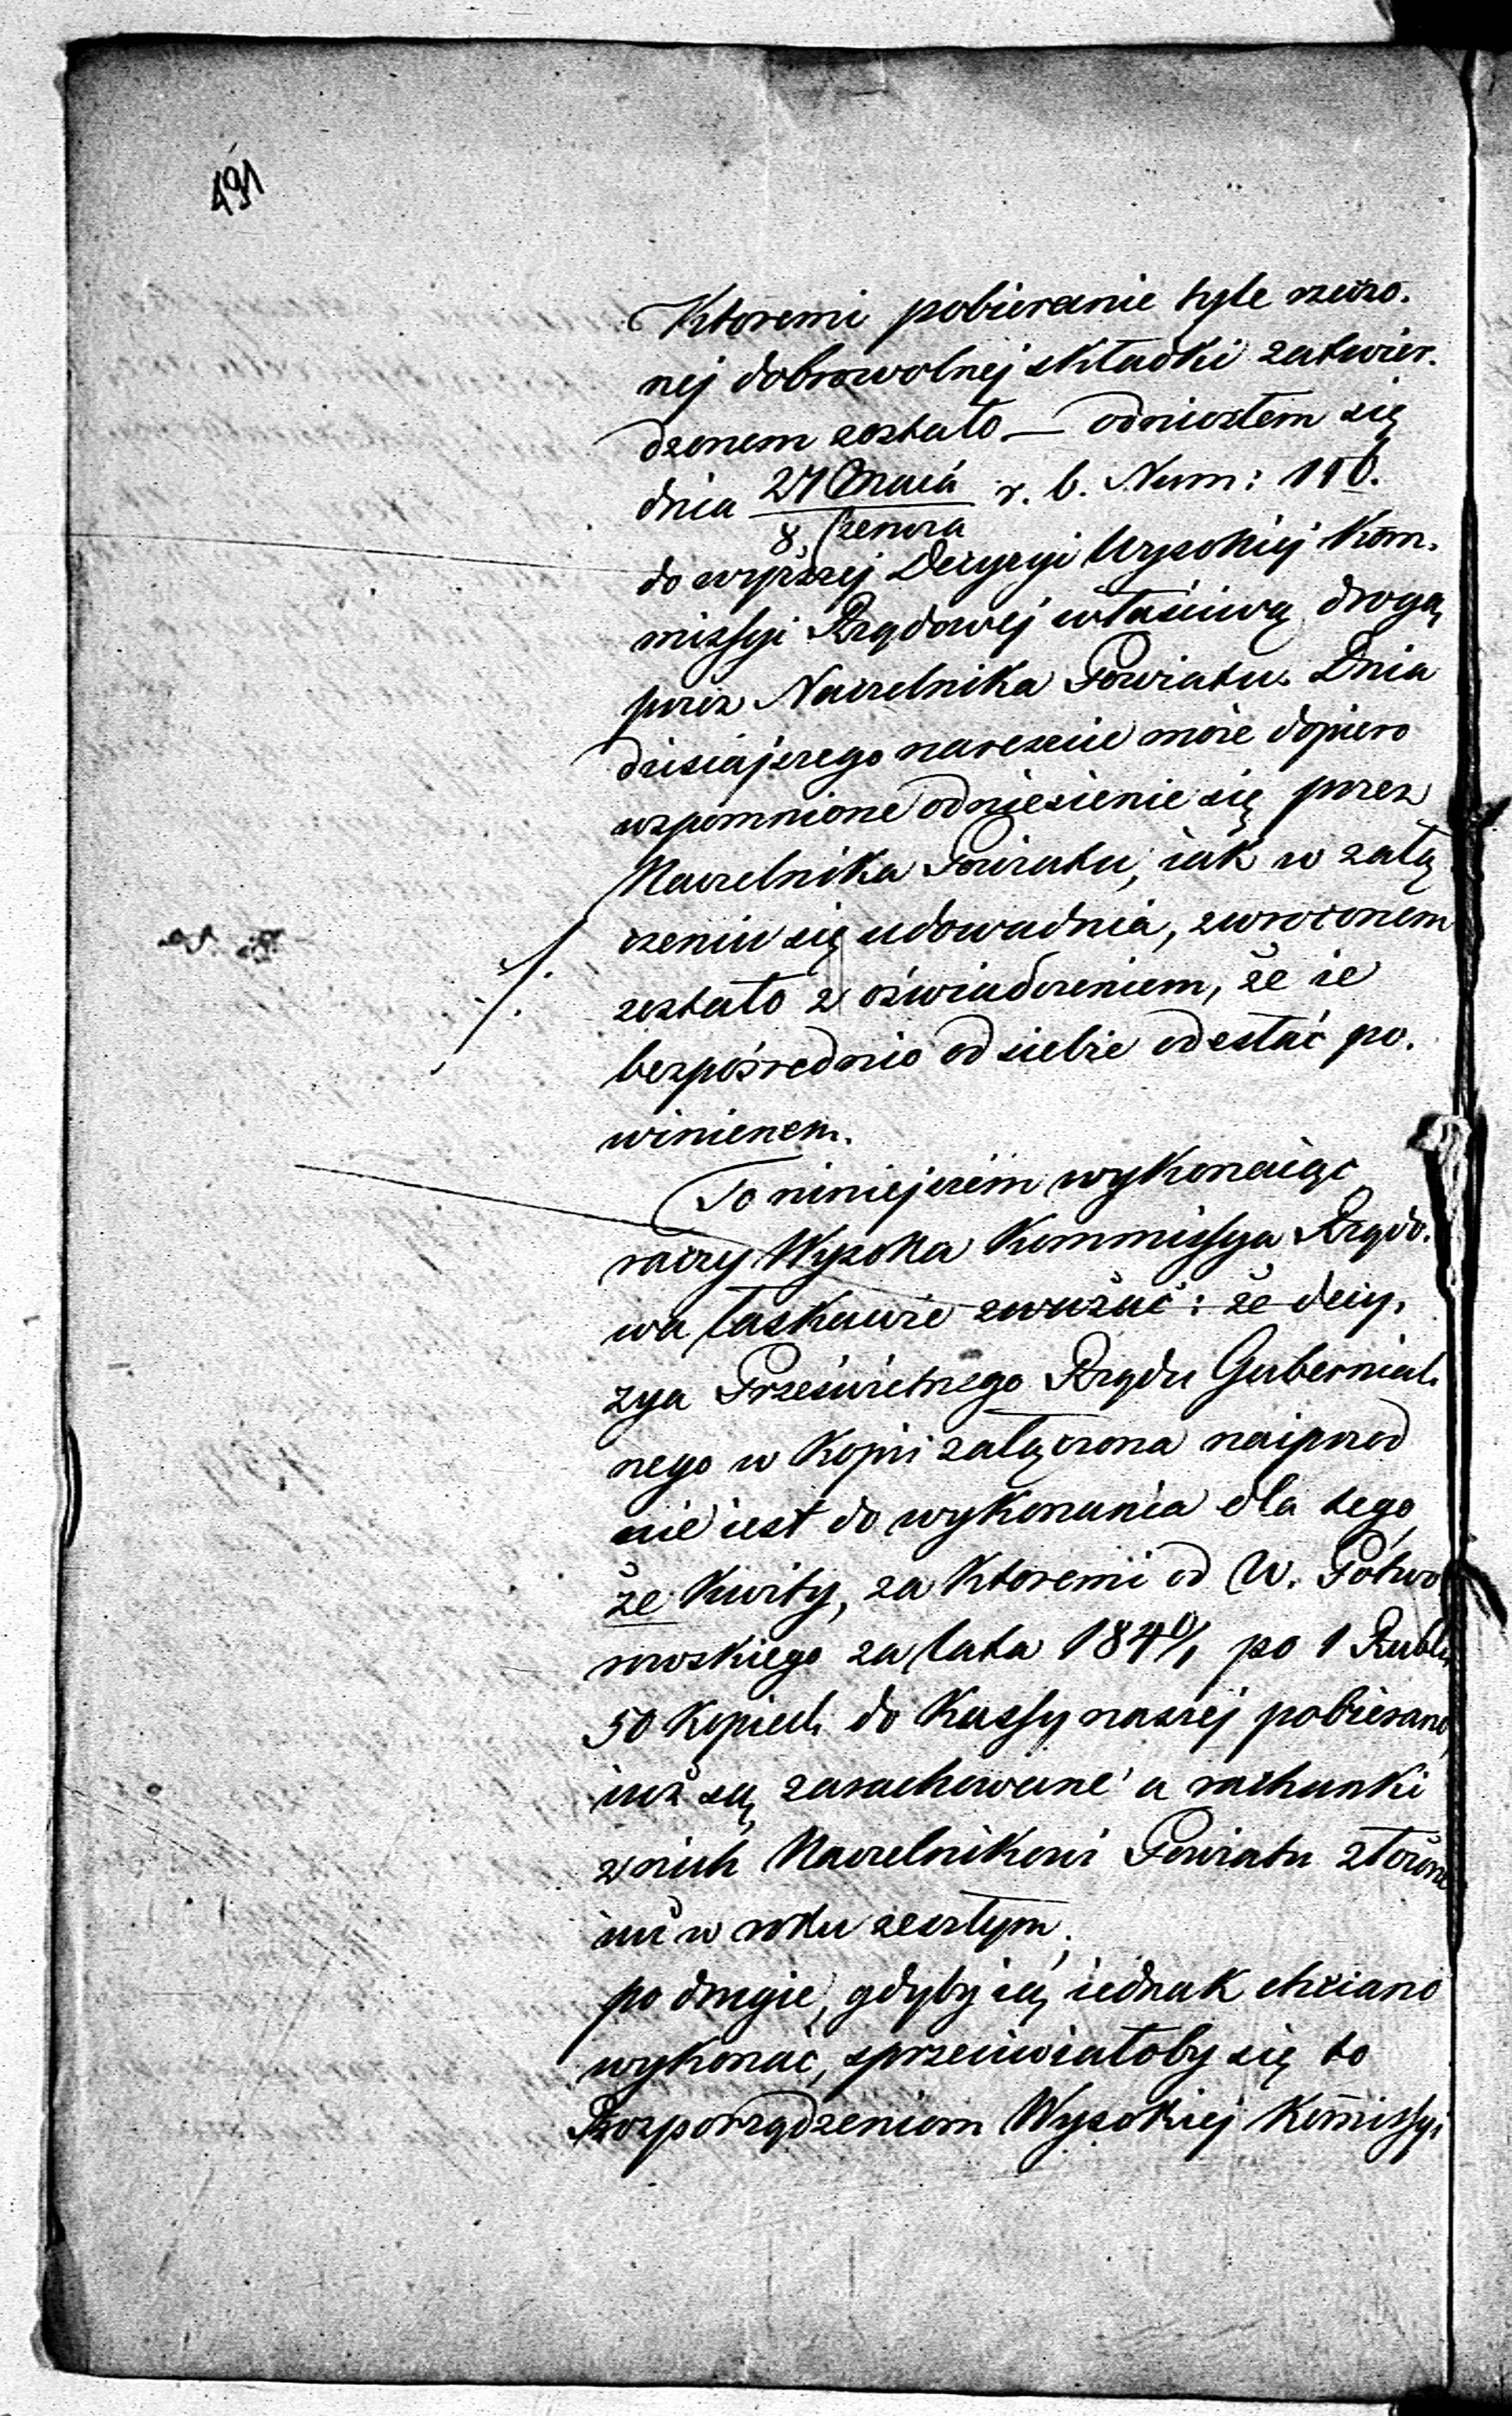 491
Ktoremi pobieranie tyle rzeczo.
nej dobrowolnej składki zatwier.
dzonem zostało — odniosłem się
dnia 27 Maia / 8 Czerwca r. b. Num: 116.
do wyższej Decyzyi Wysokiej Kom.
missyi Rządowej właściwą drogą
przez Naczelnika Powiatu. Dnia
dzisiajszego nareszcie moie dopiero
wspomnione odniesienie się przez
Naczelnika Powiatu, iak w załą
czeniu się udowadnia, zwroconem
zostało z oświadczeniem, że ie
bezpośrednio od siebie odesłać po.
winienem.
To niniejszem wykonaiąc
raczy Wysoka Kommissya Rządo.
wa łaskawie zważać: że decy.
zya Prześwietnego Rządu Gubernial.
nego w Kopii załączona naiprzod
nie iest do wykonania dla tego
że Kwity, za Ktoremi od W. Potwo
rowskiego za lata 184 0/1 po 1 Rublu
50 Kopiech do Kassy naszej pobierano,
iuż są zarachowane a rachunki
z nich Naczelnikowi Powiatu złożone
iuż w roku zeszłym;
po drugie, gdyby ią iednak chciano
wykonać, sprzeciwiałoby się to
Rozporządzeniom Wysokiej Komissyi